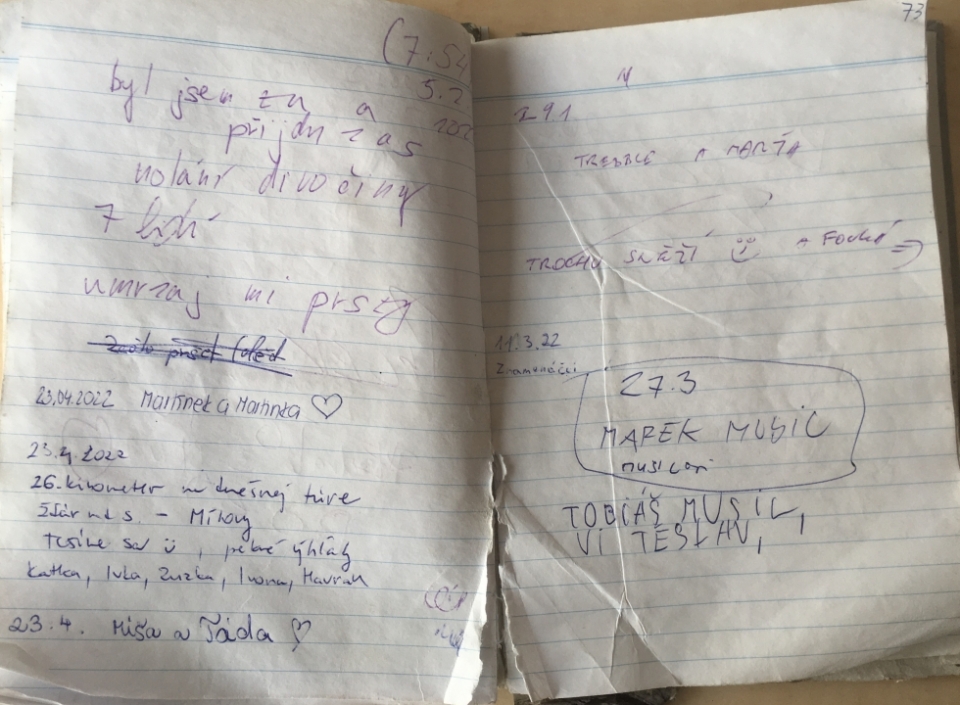 (7:54
5.2
byl jsem tu a
přijdu zas
volání divočiny
7 lidí
umrzaj mi prsty
23.04.2022 Martínek a Martinka ♡
23.4.2022
26. kilometer na dnešnej túre
Žďár n. S. - Milovy
tešíme sa ü, pekné výhľady
Katka, Ivka, Zuzka, Ivona, Havran
23.4. Míša a Táda ♡
73
A MARŤA
TROCHU SNĚŽÍ A FOUKÁ =)
11.3.22
27.3
MAREK MUSIL
musicovi
TOBIÁŠ MUSIL,
VÍTĚSLAV,